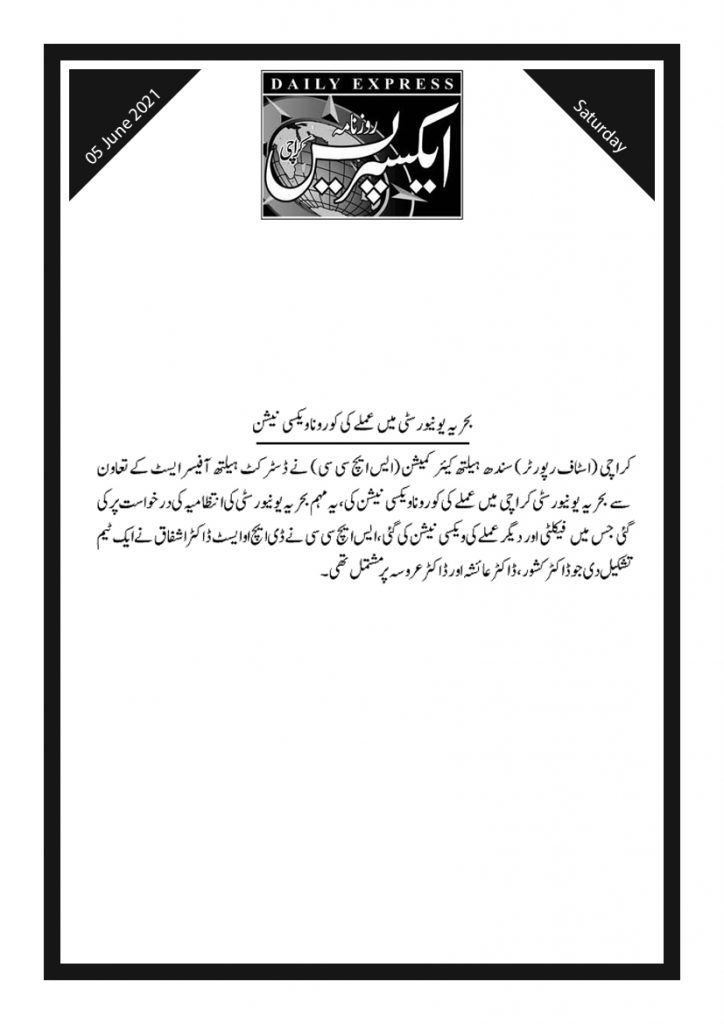 05 June 2021
DAILY EXPRESS
روزنامہ
ایکسپریس
کراچی
Saturday
بحریہ یونیورسٹی میں عملے کی کورونا ویکسی نیشن
کراچی (اسٹاف رپورٹر) سندھ ہیلتھ کیئر کمیشن (ایس ایچ سی سی) نے ڈسٹرکٹ ہیلتھ آفیسر ایسٹ کے تعاون
سے بحریہ یونیورسٹی کراچی میں عملے کی کورونا ویکسی نیشن کی، یہ مہم بحریہ یونیورسٹی کی انتظامیہ کی درخواست پر کی
گئی جس میں فیکلٹی اور دیگر عملے کی ویکسی نیشن کی گئی، ایس ایچ سی سی نے ڈی ایچ او ایسٹ ڈاکٹر اشفاق نے ایک ٹیم
تشکیل دی جو ڈاکٹر کشور، ڈاکٹر عائشہ اور ڈاکٹر عروسہ پر مشتمل تھی۔